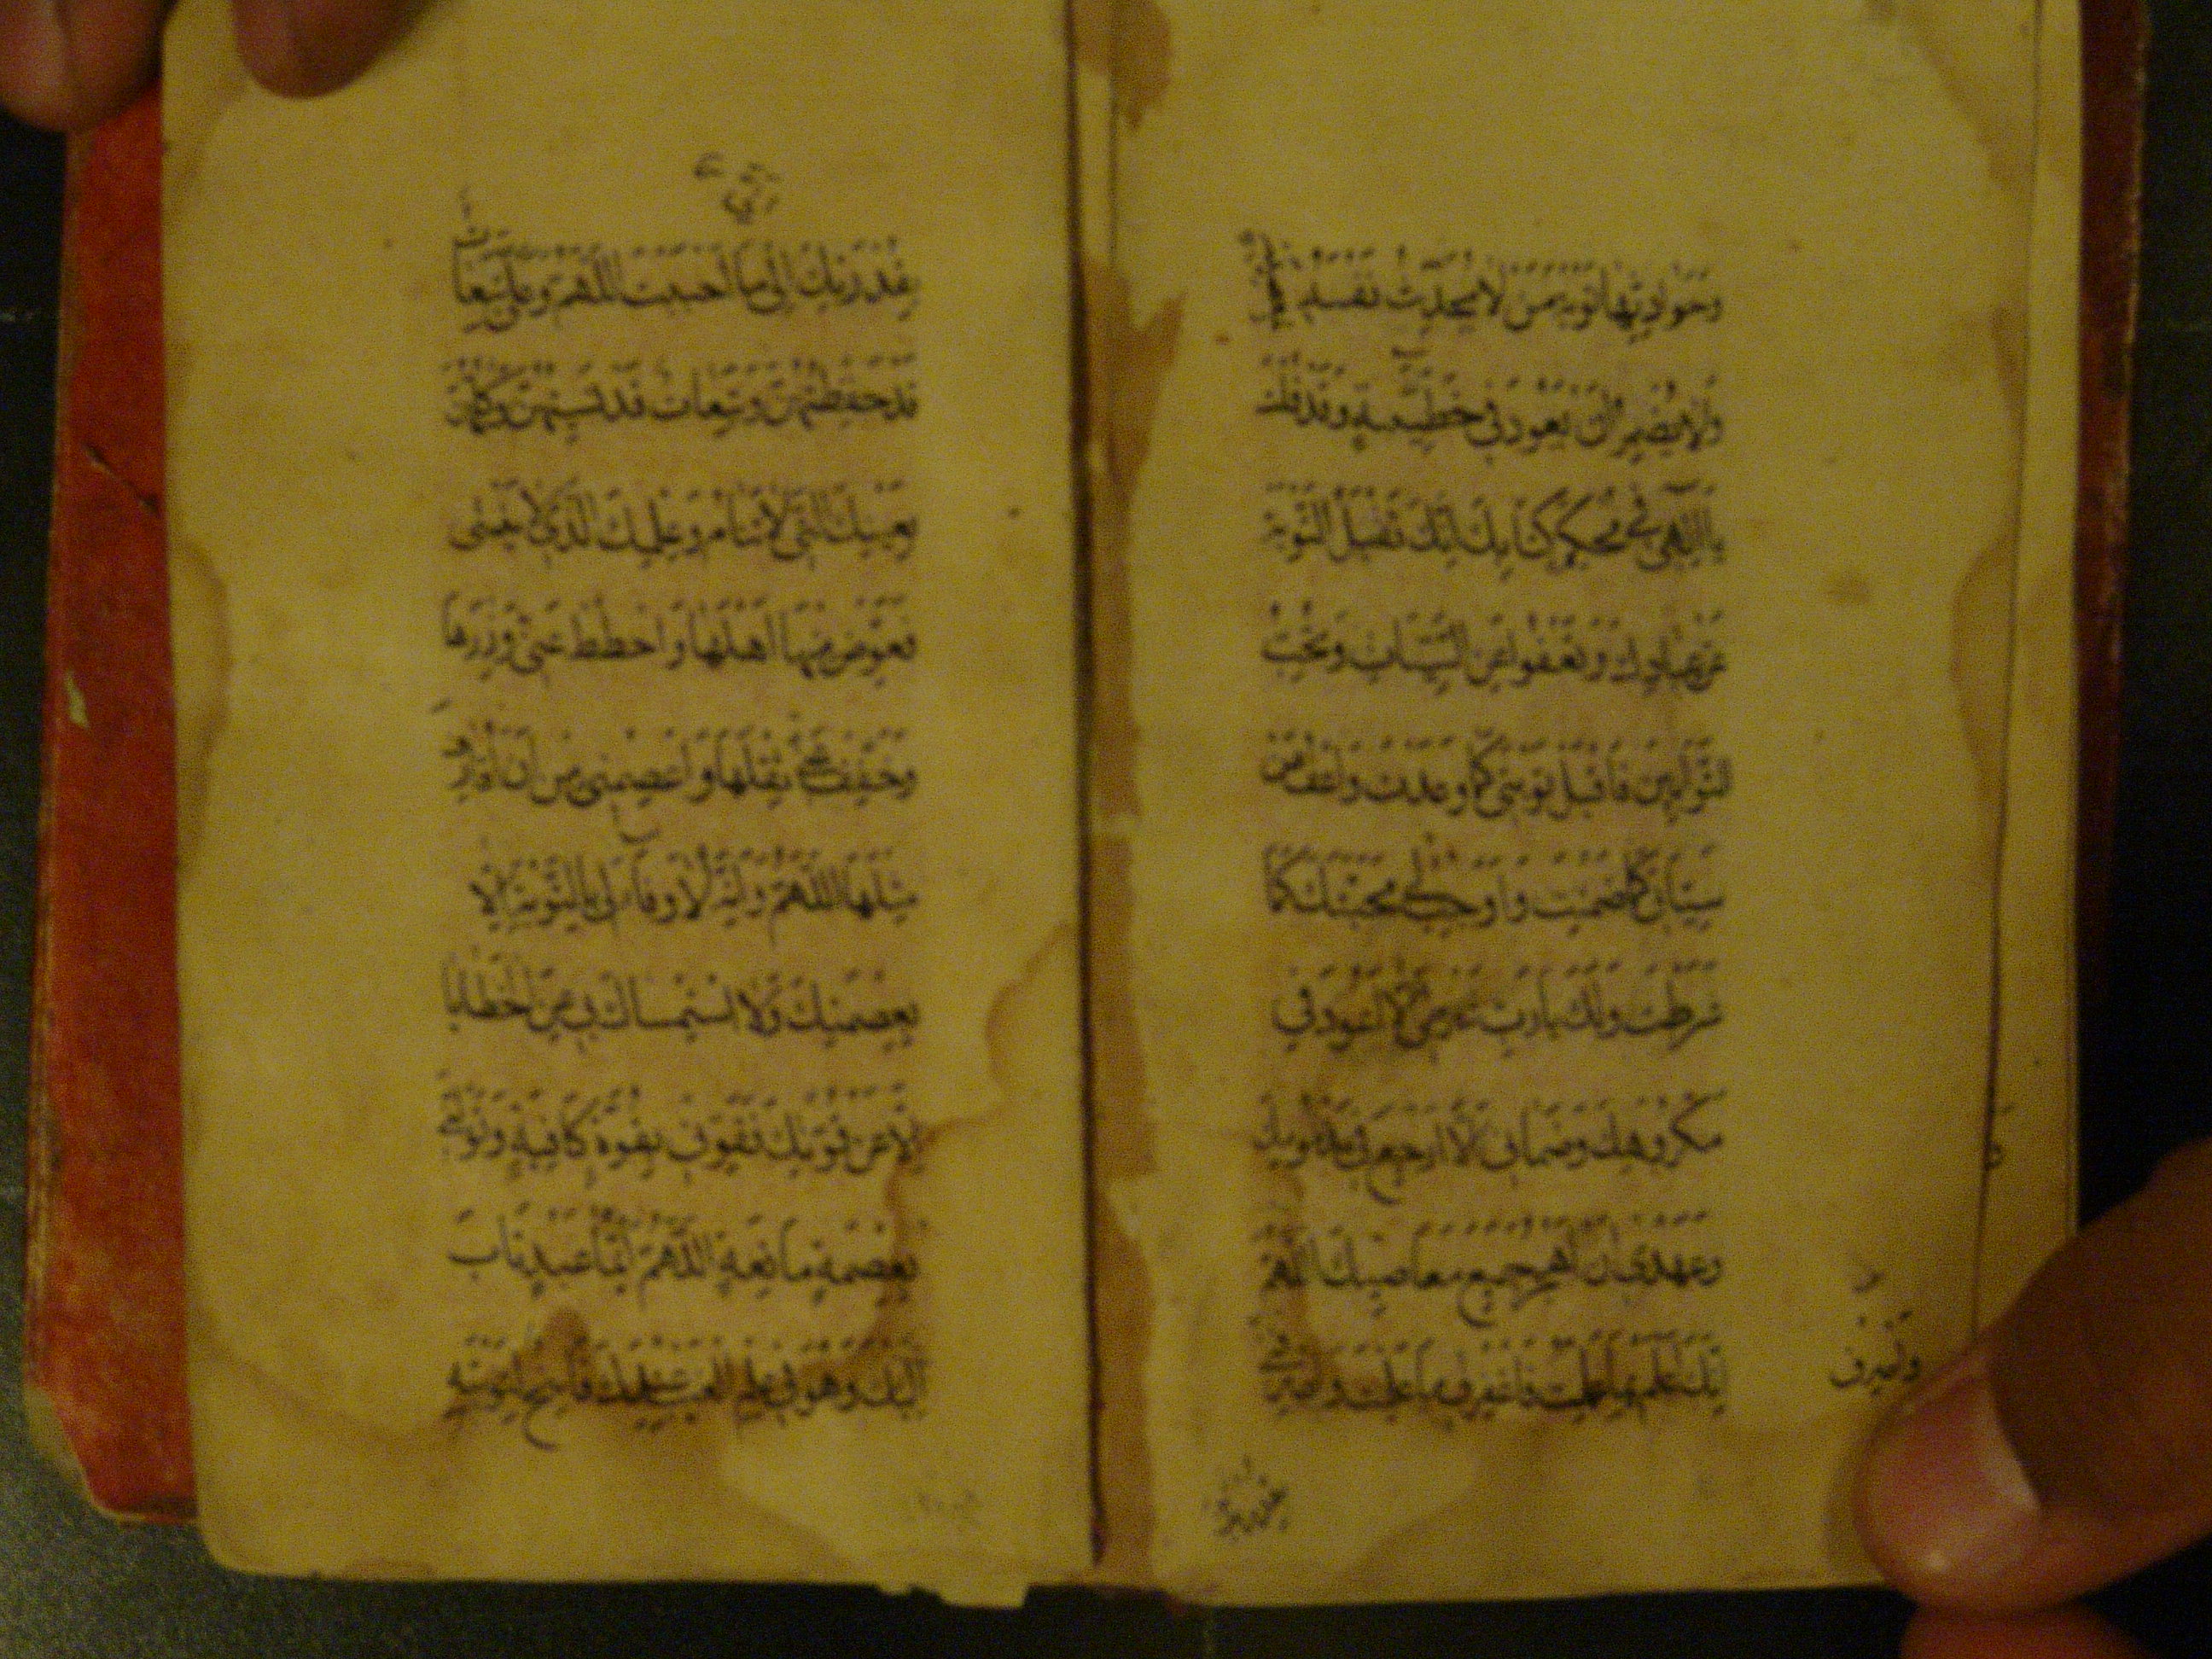 وَحَوَادِثِهَا تَوْبَةَ مَنْ لَا يُحَدِّثُ نَفْسَهُ
وَلَا يُضْمِرُ أَنْ يَعُودَ فِي خَطِيئَةٍ وَقَدْ قُلْتَ
يَا إِلٰهِي فِي مُحْكَمِ كِتَابِكَ إِنَّكَ تَقْبَلُ التَّوْبَةَ
عَنْ عِبَادِكَ وَتَعْفُو عَنِ السَّيِّئَاتِ وَتُحِبُّ
التَّوَّابِينَ فَاقْبَلْ تَوْبَتِي كَمَا وَعَدْتَ وَاعْفُ عَنْ
سَيِّئَاتِي كَمَا ضَمِنْتَ وَأَوْجِبْ لِي مَحَبَّتَكَ كَمَا
شَرَطْتَ وَلَكَ يَا رَبِّ شَرْطِي أَلَّا أَعُودَ فِي
مَكْرُوهِكَ وَضَمَانِي أَلَّا أَرْجِعَ فِي مَذْمُومِكَ
وَعَهْدِي أَنْ أَهْجُرَ جَمِيعَ مَعَاصِيكَ اللّٰهُمَّ
إِنَّكَ أَعْلَمُ بِمَا عَمِلْتُ فَاغْفِرْ لِي مَا عَلِمْتَ وَاصْرِفْنِي
وَاصْرِفْ
بِقُدْرَتِكَ إِلَى مَا أَحْبَبْتَ اللّٰهُمَّ وَعَلَيَّ تَبِعَاتٌ
قَدْ حَفِظْتُهُنَّ وَتَبِعَاتٌ قَدْ نَسِيتُهُنَّ وَكُلُّهُنَّ
بِعَيْنِكَ الَّتِي لَا تَنَامُ وَعِلْمِكَ الَّذِي لَا يَنْسَى
فَعَوِّضْ مِنْهَا أَهْلَهَا وَاحْطُطْ عَنِّي وِزْرَهَا
وَخَفِّفْ عَنِّي ثِقْلَهَا وَاعْصِمْنِي مِنْ أَنْ أُقَارِفَ
مِثْلَهَا اللّٰهُمَّ وَإِنَّهُ لَا وَفَاءَ لِي بِالتَّوْبَةِ إِلَّا
بِعِصْمَتِكَ وَلَا اسْتِمْسَاكَ بِي عَنِ الْخَطَايَا
إِلَّا عَنْ قُوَّتِكَ فَقَوِّنِي بِقُوَّةٍ كَافِيَةٍ وَتَوَلَّنِي
بِعِصْمَةٍ مَانِعَةٍ اللّٰهُمَّ أَيُّمَا عَبْدٍ تَابَ
إِلَيْكَ وَهُوَ فِي عِلْمِ الْغَيْبِ عِنْدَكَ فَاسِخٌ لِتَوْبَتِهِ